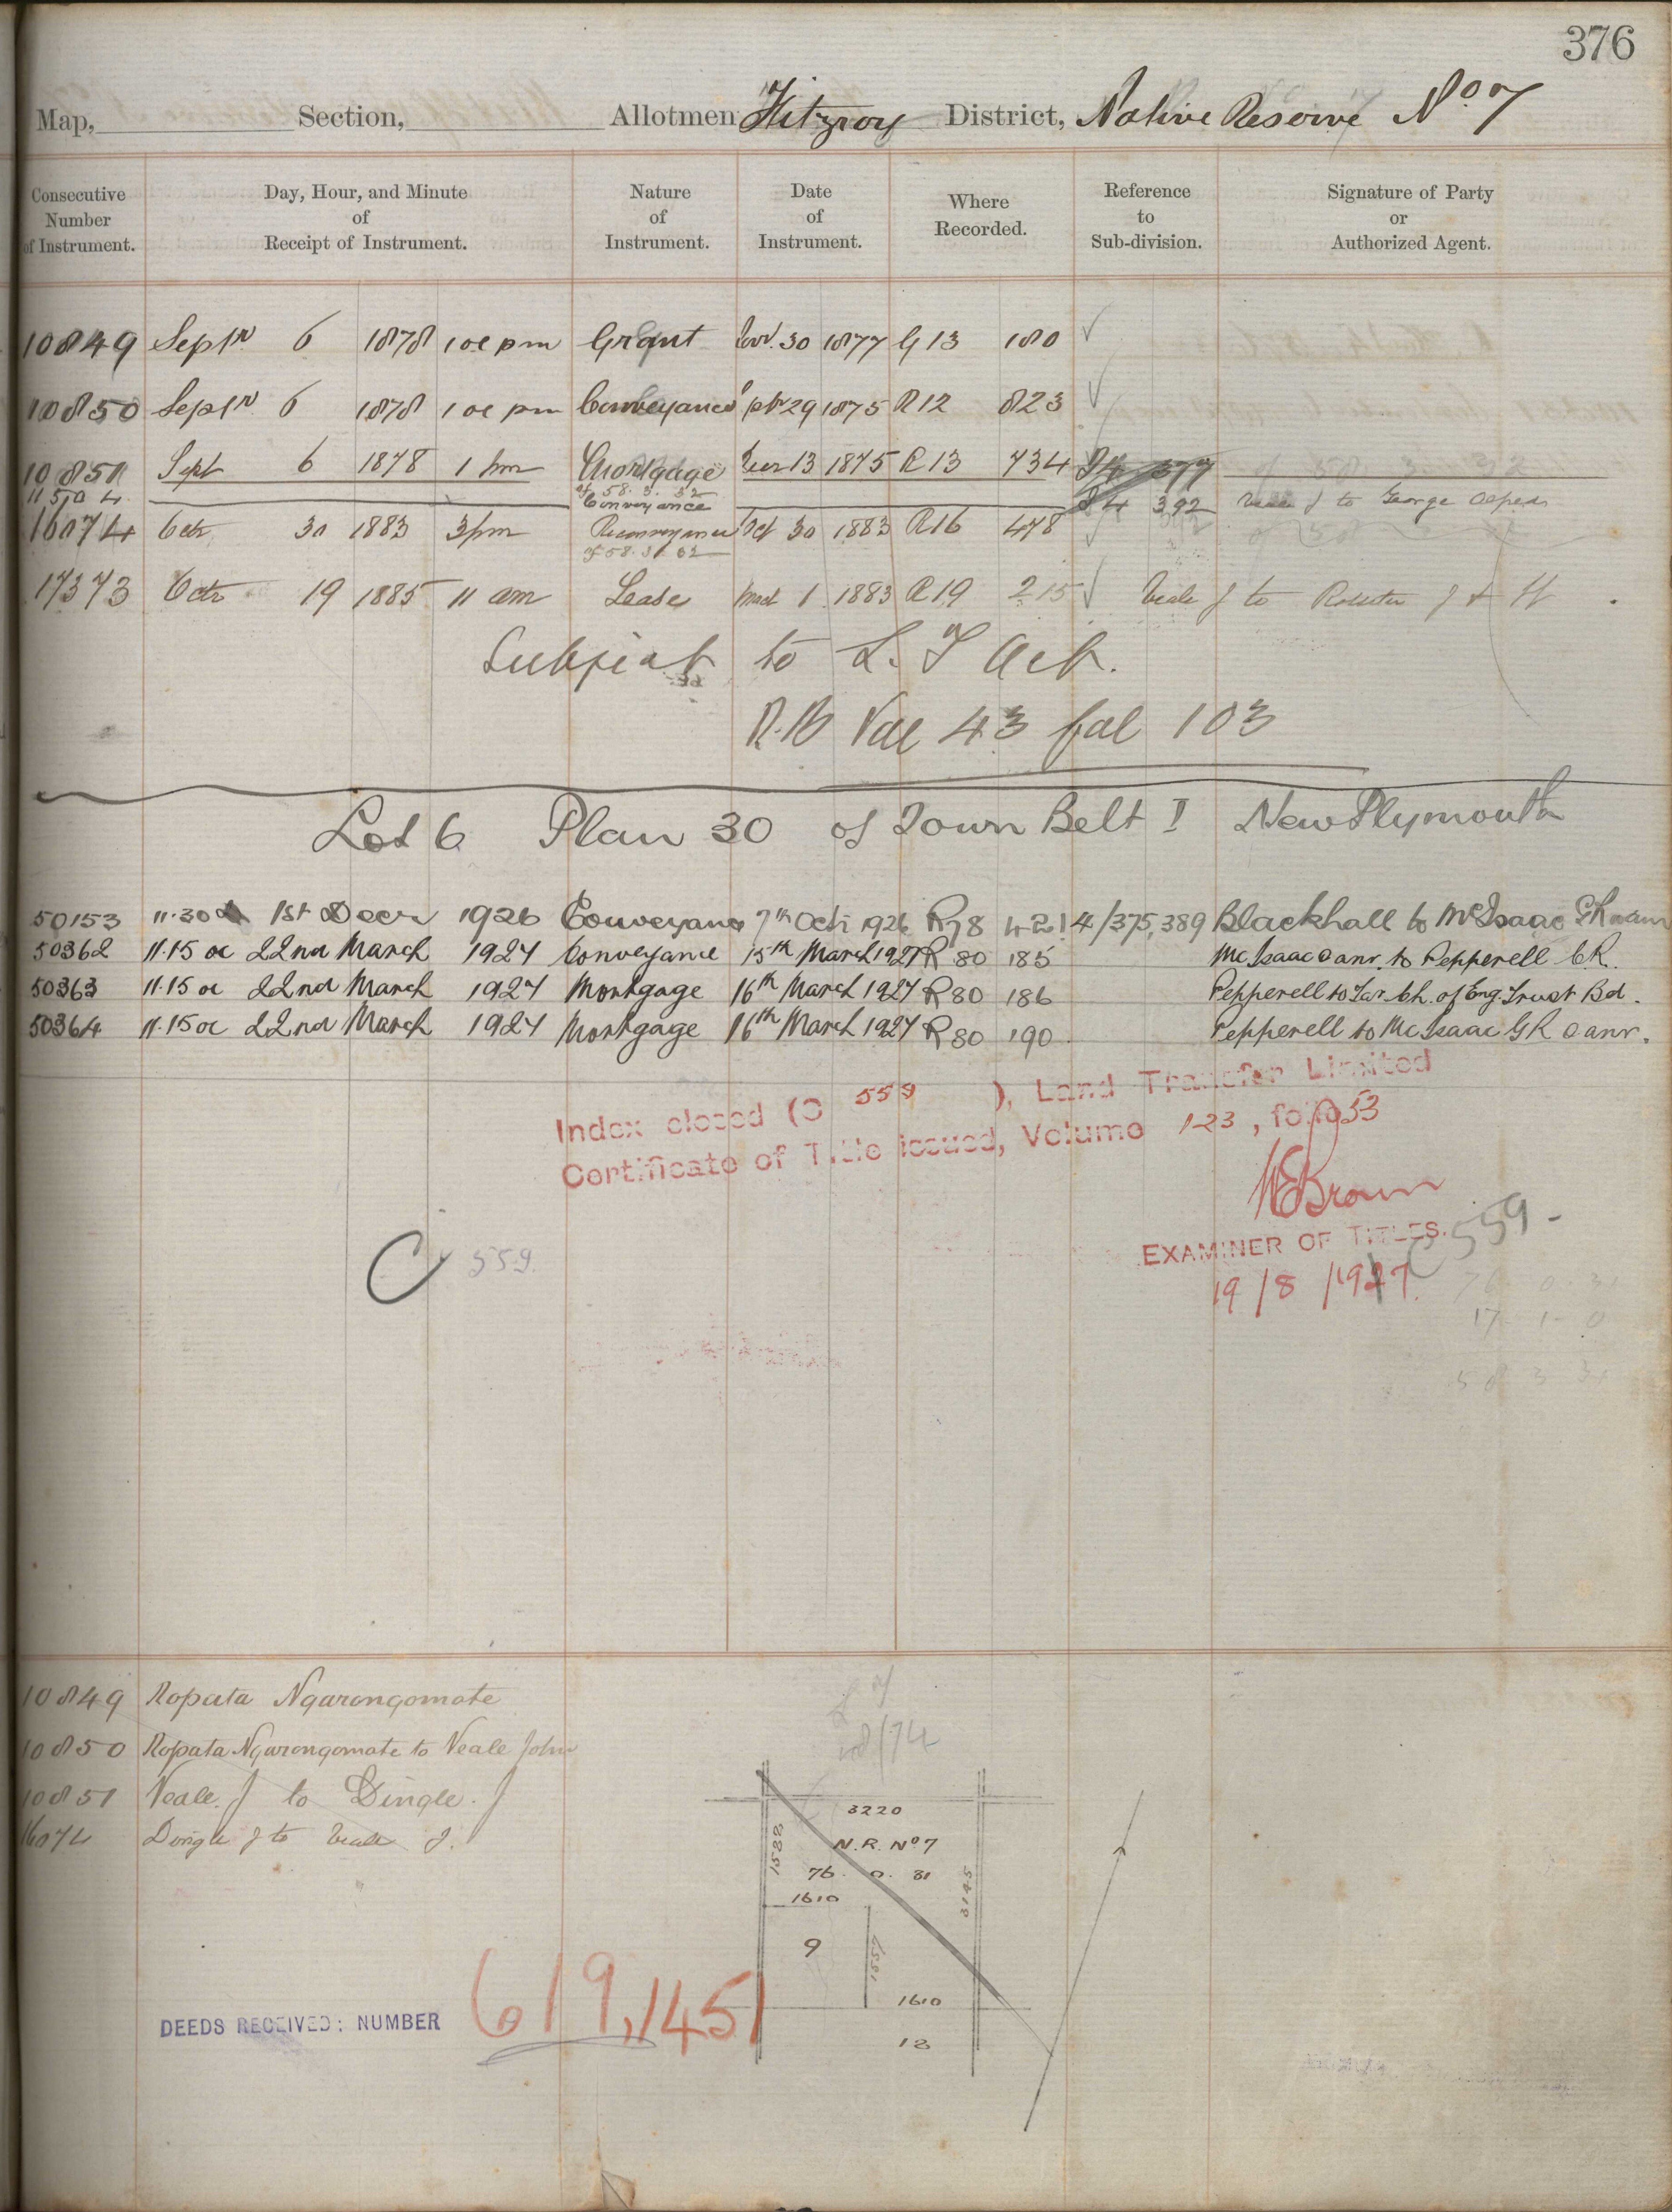 376
Map, Section, Allotment Fitzroy District, Native Reserve No 7
Consecutive Number of Instrument. Day, Hour, and Minute of Receipt of Instrument. Nature of Instrument. Date of Instrument. Where Recorded. Reference to Sub-division. Signature of Party or Authorized Agent.
10849 Septr 6 1878 1 oc pm Grant Novr. 30 1877 G 13 180 √
10850 Septr 6 1878 1 oc pm Conveyance 29 1875 R12 823 √
10851 Sept 6 1878 1 pm Mortgage 13 1875 R13 734
of 58. 3. 32
11504 Conveyance D4 392 Neale J to George
16074 Octr 30 1883 3 pm Reconveyance Oct 30 1883 R16 478 √
of 58. 3. 32
17373 Octr 19 1885 11 am Lease Mad 1 1883 R19 215 √ Neale J to J & H
Subject to L. T Act.
R.B Vol 43 fol 103
Lot 6 Plan 30 of Town Belt I New Plymouth
50153 11.30 1st Decr 1926 Conveyance 7th Octr 1926 R78 421 4/375,389 Blackhall to McIsaac GR & anr
50362 11.15 oc 22nd March 1927 Conveyance 15th March 1927 R 80 185 McIsaac & anr. to Pepperell C.R.
50363 11.15 oc 22nd March 1927 Mortgage 16th March 1927 R 80 186 Pepperell to Tar. Ch. of Eng. Trust Bd.
50364 11.15 oc 22nd March 1927 Mortgage 16th March 1927 R 80 190 Pepperell to McIsaac GR & anr.
Index closed (C 559 ), Land Transfer Limited
Certificate of Title issued, Volume 123, folio 53
WE Brown
EXAMINER OF TITLES.
C 559 -
19/8/1927.
C 559.
76 0 31
17 1 0
58 3 31
10849 Ropata Ngarongomate
10850 Ropata Ngarongomate to Neale John
10851 Neale. J to Dingle. J
16074 Dingle J to Neale J.
3220
1588
N.R. No 7
76. 0. 31
1610
3145
9
1557
1610
12
DEEDS RECEIVED: NUMBER 619,1451